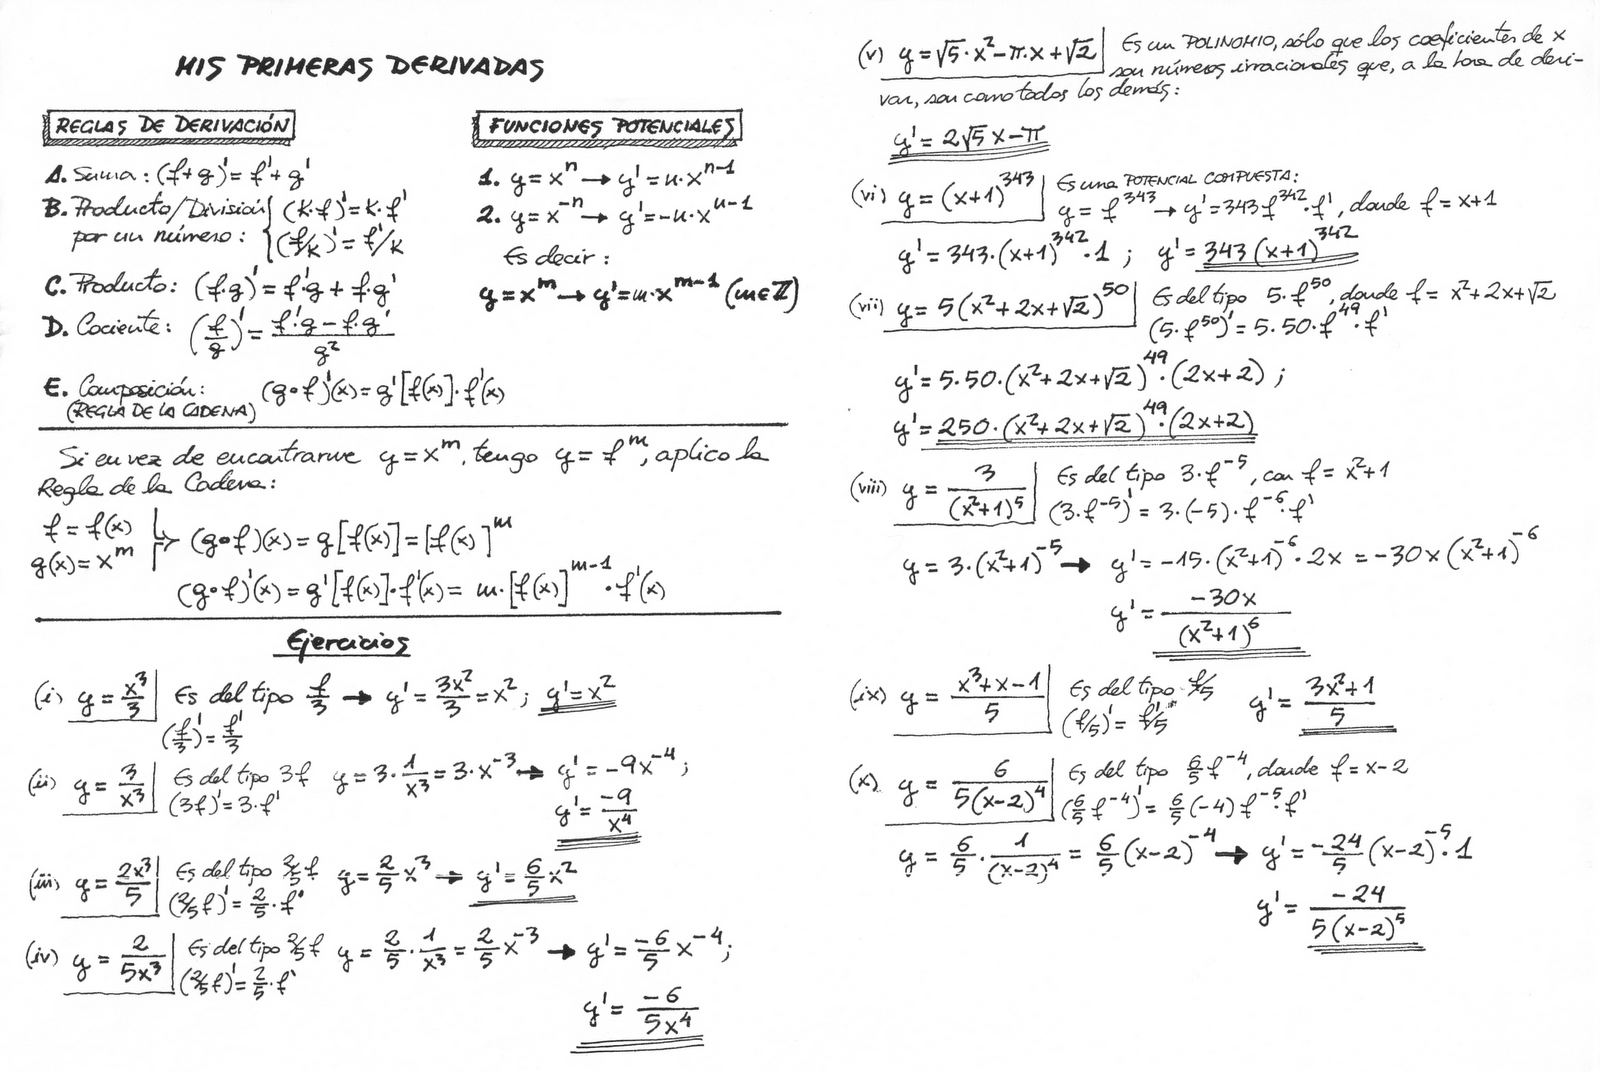 MIS PRIMERAS DERIVADAS
REGLAS DE DERIVACIÓN
A. Suma: (f+g)' = f'+g'
B. Producto/División por un número: { (K·f)' = K·f'
(f/K)' = f'/K
C. Producto: (f·g)' = f'·g + f·g'
D. Cociente: (f/g)' = (f'·g − f·g')/g²
E. Composición: (g∘f)'(x) = g'[f(x)]·f'(x)
(REGLA DE LA CADENA)
FUNCIONES POTENCIALES
1. y = xⁿ → y' = n·xⁿ⁻¹
2. y = x⁻ⁿ → y' = −n·x⁻ⁿ⁻¹
Es decir:
y = xᵐ → y' = m·xᵐ⁻¹ (m∈ℤ)
Si en vez de encontrarme y = xᵐ, tengo y = fᵐ, aplico la
Regla de la Cadena:
f = f(x)
g(x) = xᵐ
(g∘f)(x) = g[f(x)] = [f(x)]ᵐ
(g∘f)'(x) = g'[f(x)]·f'(x) = m·[f(x)]ᵐ⁻¹·f'(x)
Ejercicios
(i) y = x³/3 Es del tipo f/3 → y' = 3x²/3 = x²; y' = x²
(f/3)' = f'/3
(ii) y = 3/x³ Es del tipo 3f y = 3·1/x³ = 3·x⁻³ → y' = −9x⁻⁴;
(3f)' = 3·f'
y' = −9/x⁴
(iii) y = 2x³/5 Es del tipo 2/5 f y = 2/5 x³ → y' = 6/5 x²
(2/5 f)' = 2/5·f'
(iv) y = 2/5x³ Es del tipo 2/5 f y = 2/5·1/x³ = 2/5 x⁻³ → y' = −6/5 x⁻⁴;
(2/5 f)' = 2/5·f'
y' = −6/5x⁴
(v) y = √5·x² − π·x + √2 Es un POLINOMIO, sólo que los coeficientes de x
son números irracionales que, a la hora de deri-
var, son como todos los demás:
y' = 2√5 x − π
(vi) y = (x+1)³⁴³ Es una POTENCIAL COMPUESTA:
y = f³⁴³ → y' = 343f³⁴²·f', donde f = x+1
y' = 343·(x+1)³⁴²·1; y' = 343(x+1)³⁴²
(vii) y = 5(x²+2x+√2)⁵⁰ Es del tipo 5·f⁵⁰, donde f = x²+2x+√2
(5·f⁵⁰)' = 5·50·f⁴⁹·f'
y' = 5·50·(x²+2x+√2)⁴⁹·(2x+2);
y' = 250·(x²+2x+√2)⁴⁹·(2x+2)
(viii) y = 3/(x²+1)⁵ Es del tipo 3·f⁻⁵, con f = x²+1
(3·f⁻⁵)' = 3·(−5)·f⁻⁶·f'
y = 3·(x²+1)⁻⁵ → y' = −15·(x²+1)⁻⁶·2x = −30x(x²+1)⁻⁶
y' = −30x/(x²+1)⁶
(ix) y = (x³+x−1)/5 Es del tipo f/5 y' = (3x²+1)/5
(f/5)' = f'/5
(x) y = 6/5(x−2)⁴ Es del tipo 6/5 f⁻⁴, donde f = x−2
(6/5 f⁻⁴)' = 6/5(−4)f⁻⁵·f'
y = 6/5·1/(x−2)⁴ = 6/5(x−2)⁻⁴ → y' = −24/5(x−2)⁻⁵·1
y' = −24/5(x−2)⁵